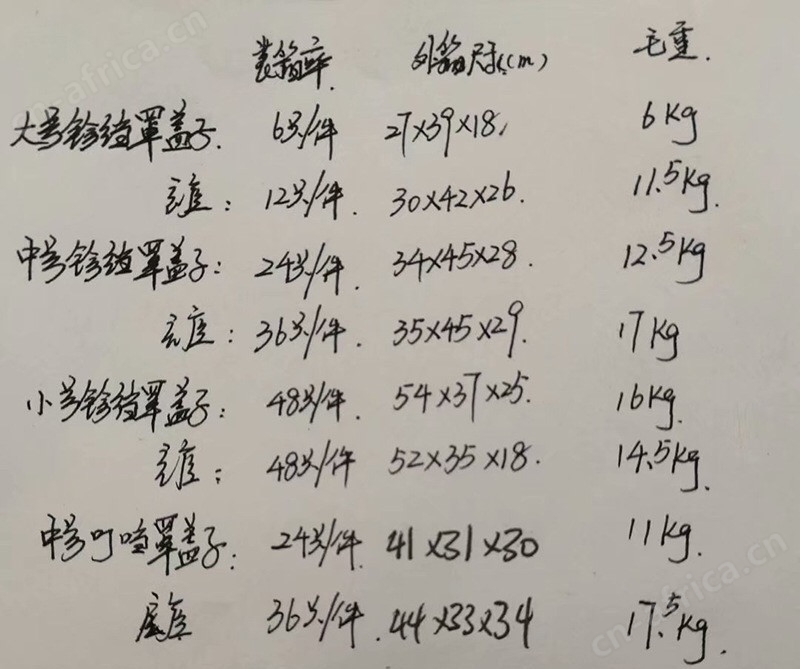 装箱率 外箱尺寸(cm) 毛重.
大号铃铛罩盖子. 6只/件 27×39×18. 6kg
底座: 12只/件. 30×42×26. 11.5kg.
中号铃铛罩盖子: 24只/件. 34×45×28. 12.5kg
底座: 36只/件. 35×45×29. 17kg
小号铃铛罩盖子: 48只/件. 54×37×25. 16kg.
底座: 48只/件 52×35×18. 14.5kg.
中号叮当罩盖子: 24只/件. 41×31×30 11kg.
底座 36只/件. 44×33×34 17.5kg.
cnafrica.cn